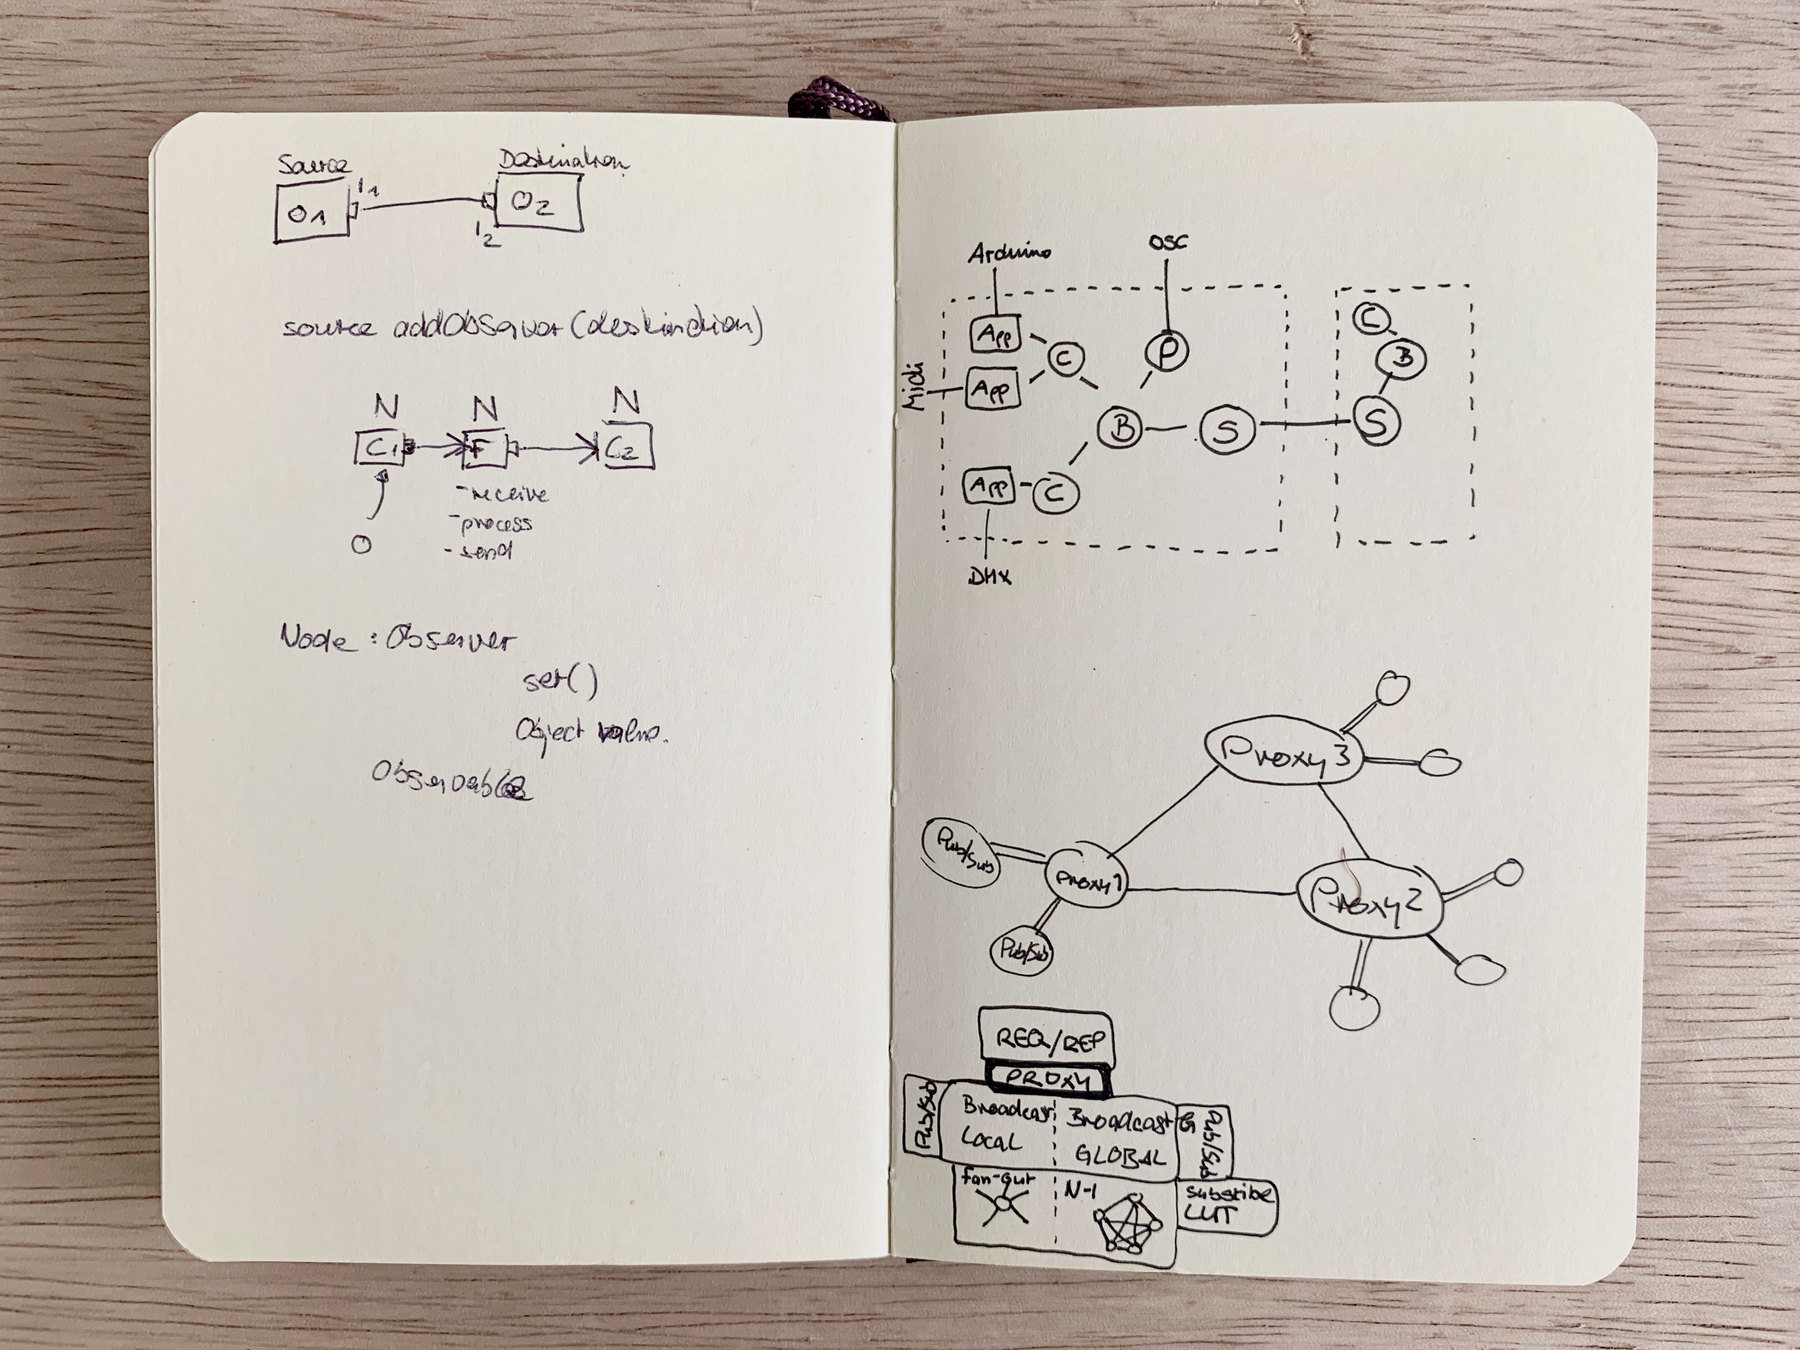 Source
Destination
O1
I1
I2
O2
source addObserver(destination)
N N N
C1 F C2
-receive
-process
-send
O
Node : Observer
set()
Object value.
Observable
Arduino
OSC
Midi
App
App
App
C
C
P
B
S
DMX
C
B
S
Proxy3
Pub/Sub
Proxy1
Proxy2
Pub/Sub
REQ/REP
PROXY
Pub/Sub
Broadcast
LOCAL
Broadcast
GLOBAL
G
Pub/Sub
fan-out
N-1
Subscribe
LUT